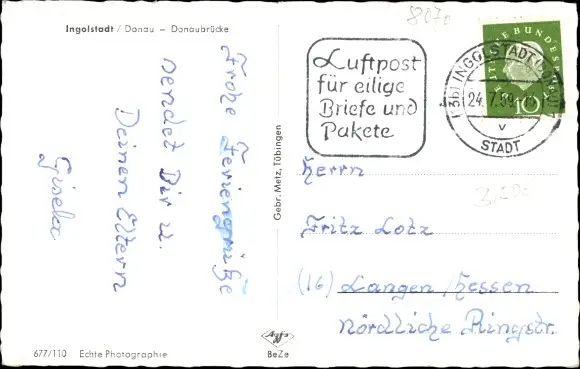 Ingolstadt / Donau – Donaubrücke
Frohe Feriengrüße
sendet Dir u.
Deinen Eltern
Gisela
677/110 Echte Photographie
Gebr. Metz, Tübingen
Agfa
BeZe
8070
Luftpost
für eilige
Briefe und
Pakete
INGOLSTADT
24.7.59
V
STADT
10
Herrn
Fritz Lotz
(16) Langen/Hessen
Nördliche Ringstr.